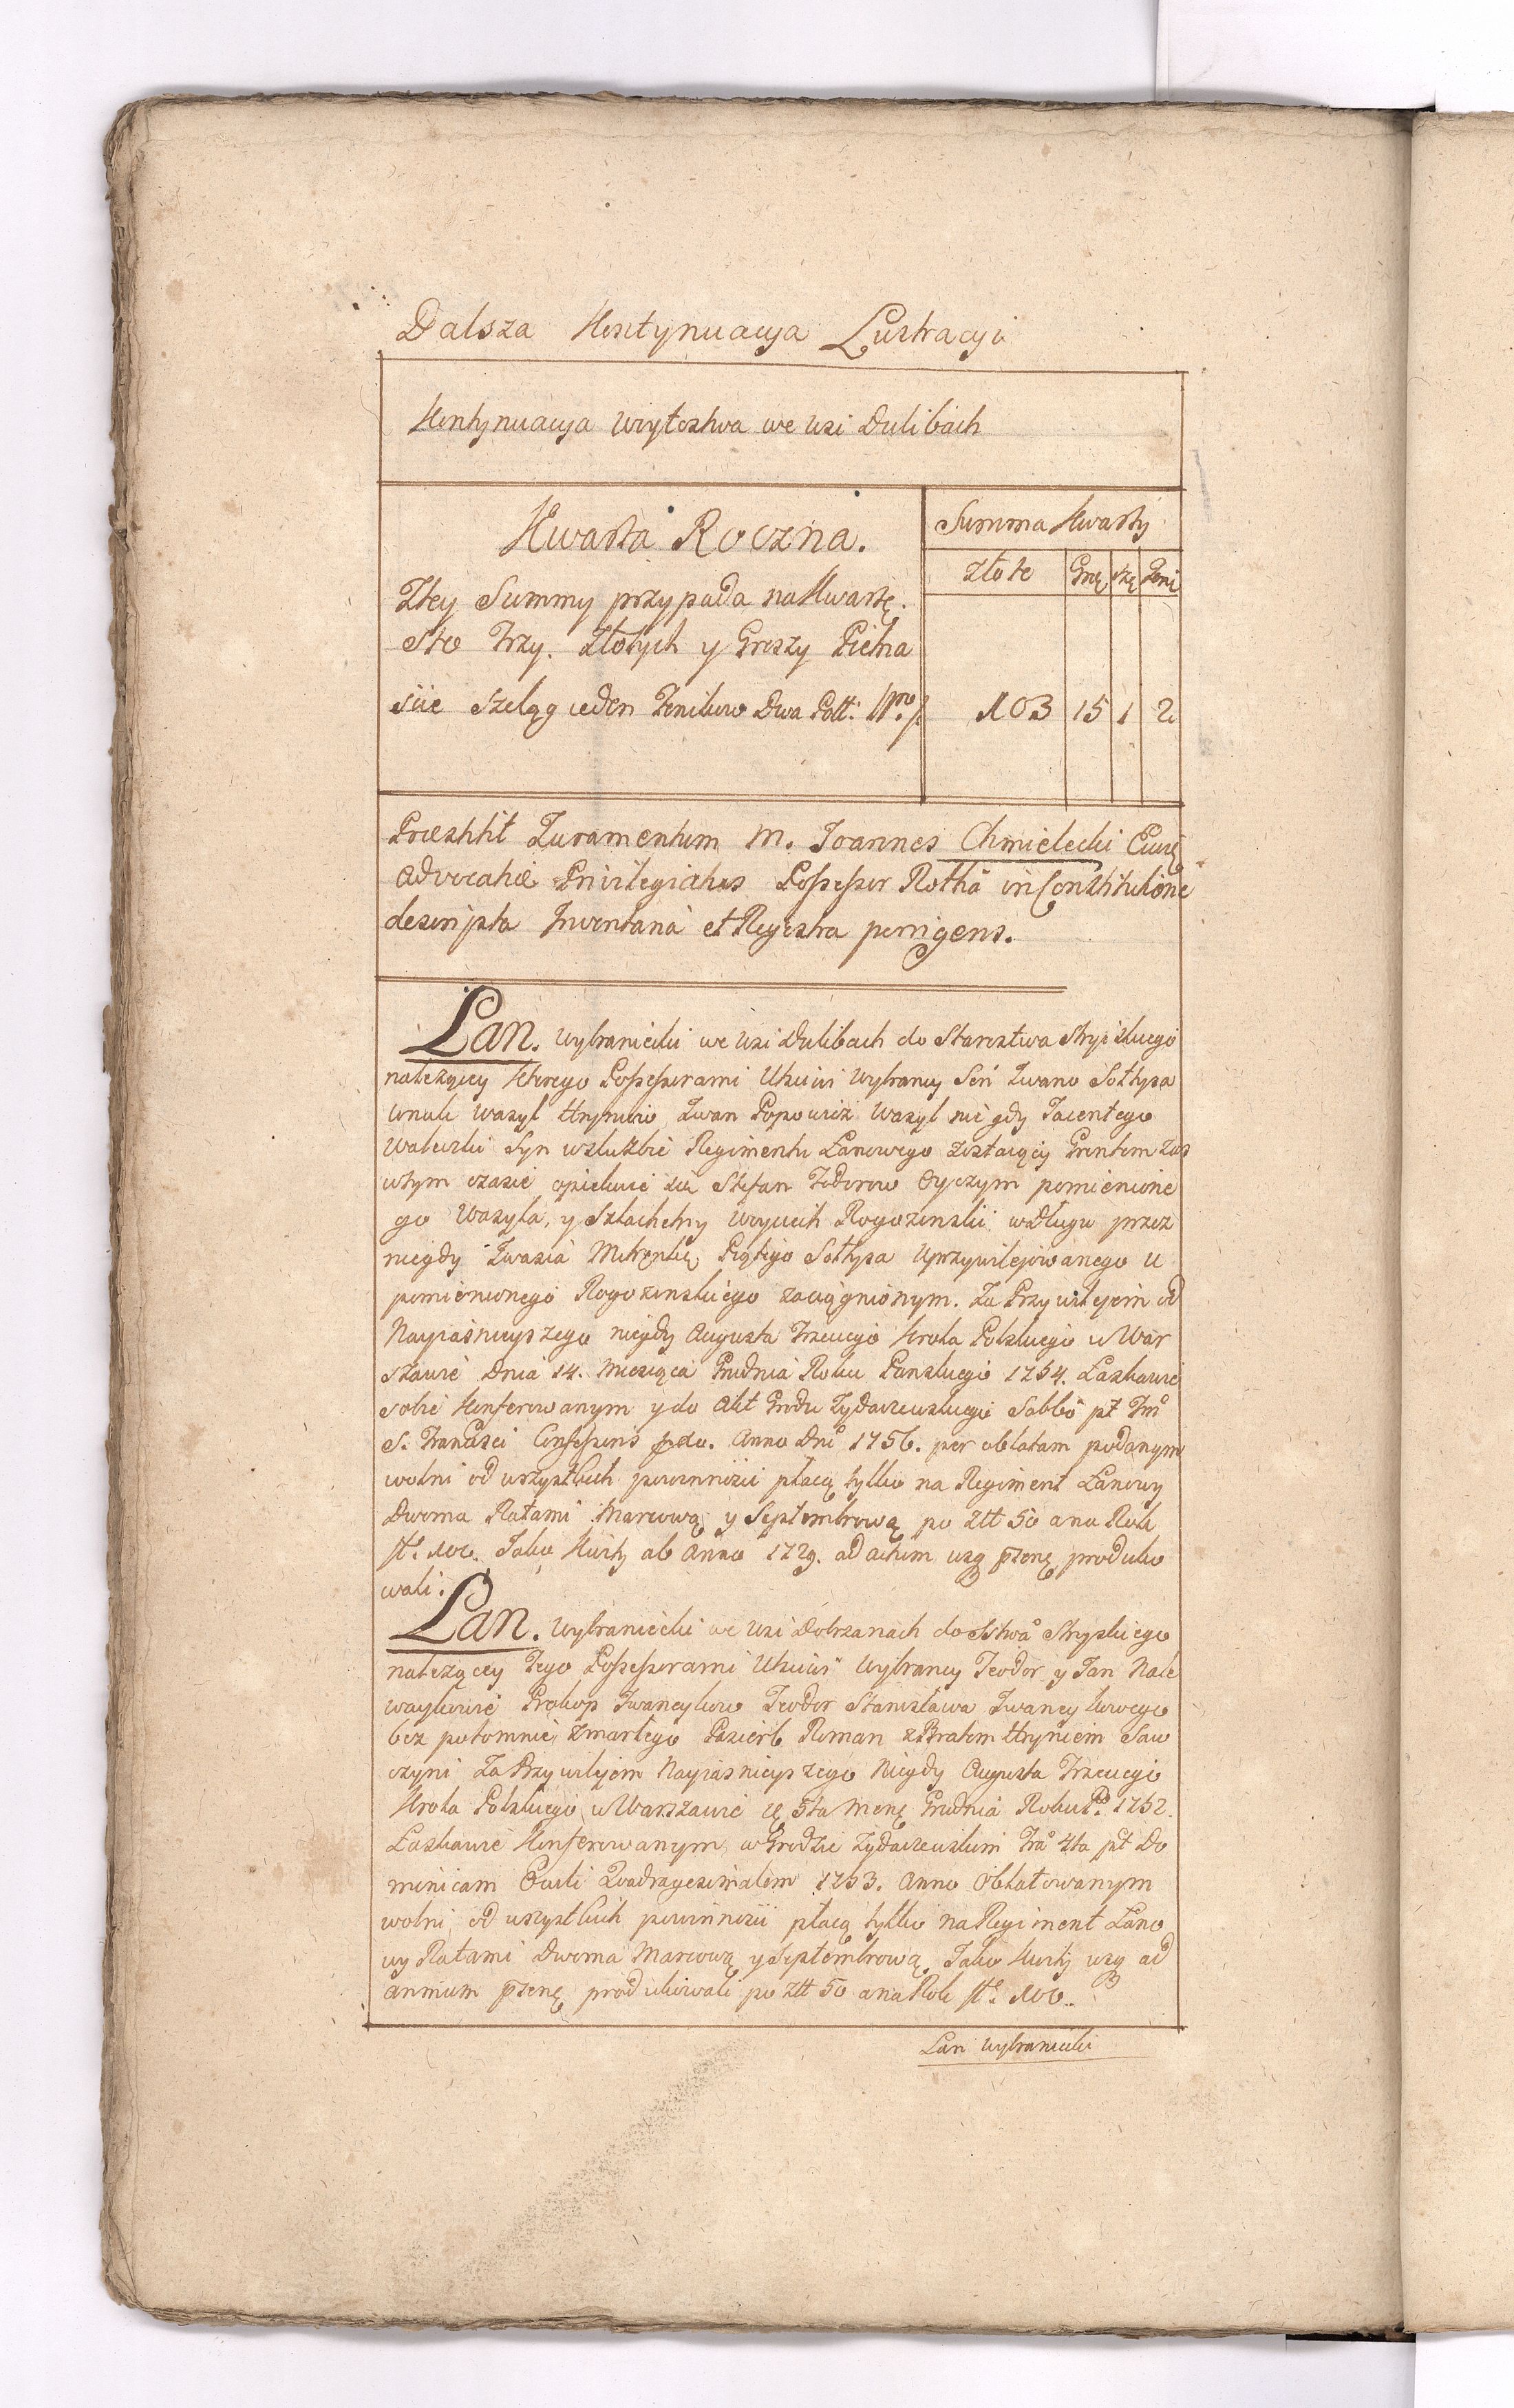 Dalsza Kontynuacya Lustracyi
Kontynuacya Woytostwa we Wsi Dulibach
Kwarta Roczna.
Summa Kwarty
Złote Gro Sze Peni
Ztey Summy przypada na Kwartę.
Sto Trzy. Złotych y Groszy Pietna
scie Szeląg ieden Penikow Dwa Poll:
103 15 1 2
Præstitit Juramentum M. Joannes Chmielecki
Advocatiæ Privilegiatus Possessor Rothâ in Constitutione
descripta Inventaria et Regestra porrigens.
Łan. Wybraniecki we Wsi Dulibach do Starostwa Stryiskiego
należący ktorego Possessorami Uczciwi Wybrancy Seń Iwano Sołtysa
Wnuk Wasyl Hrynow Iwan Popowicz Wasyl nie gdy Jacentego
Waleczki Syn w służbie Regimentu Łanowego zostaiący Gruntem zas
w tym czasie opiekuie się Stefan Fedorow Oyczym pomienione
go Wasyla, y Szlachetny Woyciech Rogozinski w Długu przez
niegdy Iwasia Mekrentkę Piątego Sołtysa Uprzywilejowanego u
pomienionego Rogozinskiego zaciągnionym. Za Przywilejem od
Nayiasnieyszego niegdy Augusta Trzeciego Krola Polskiego w War
szawie Dnia 14. Miesiąca Grudnia Roku Panskiego 1754. Łaskawie
sobie Konferowanym y do Akt Grodu Zydaczewskiego Sabbo pt Fm
S. Francisci Confessoris pdo. Anno Dni 1756. per oblatam podanym
wolni od wszystkich powinnosci płacą tylko na Regiment Łanowy
Dwoma Ratami Marcową y Septembrową po Ztt 50 a na Rok
ft. 100. Jako Kwity ab Anno 1729. ad actum usq psens produko
wali.
Łan. Wybraniecki we Wsi Dobrzanach do Sttwa Stryskiego
należący Jego Possessorami Uczciwi Wybrancy Teodor y Jan Nale
waykowie Prokop Iwaneykow Teodor Stanisława Iwaneykowego
bez potomnie zmarłego Pasierb Roman z Bratem Hryniem Saw
czyni Za Przywilejem Nayiasnieyszego Niegdy Augusta Trzeciego
Krola Polskiego w Warszawie 5ta Mense Grudnia Roku P. 1752.
Łaskawie Konferowanym w Grodzie Zydaczewskim Fra 4ta pt Do
minicam Quadragesimalem 1753. Anno Oblatowanym
wolni od wszystkich powinnosci płacą tylko na Regiment Łano
wy Ratami Dwoma Marcową y Septembrową Jako Kwity usq ad
annum psens produkowali po Ztt 50 a na Rok ft. 100.
Łan Wybraniecki